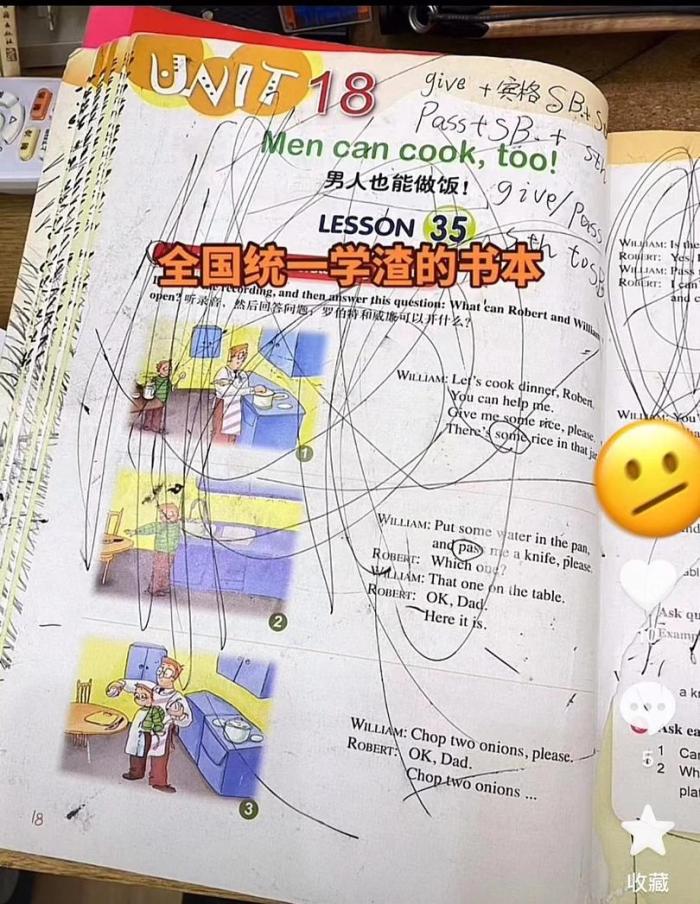 UNIT 18
give + 宾格 SB. + S
Pass + SB. + sth
give/Pass
sth to SB
Men can cook, too!
男人也能做饭!
LESSON 35
全国统一学渣的书本
recording, and then answer this question: What can Robert and William
open? 听录音,然后回答问题:罗伯特和威廉可以开什么?
WILLIAM: Let's cook dinner, Robert.
You can help me.
Give me some rice, please.
There's some rice in that jar
1
WILLIAM: Put some water in the pan,
and pass me a knife, please.
ROBERT: Which one?
WILLIAM: That one on the table.
ROBERT: OK, Dad.
Here it is.
2
WILLIAM: Chop two onions, please.
ROBERT: OK, Dad.
Chop two onions ...
3
18
WILLIAM: Is the
ROBERT: Yes, I
WILLIAM: Pass
ROBERT: I can
and
WILLIAM: You'
Ask qu
Examp
a k
Ask ea
1 Can
2 Wh
pla
5
收藏